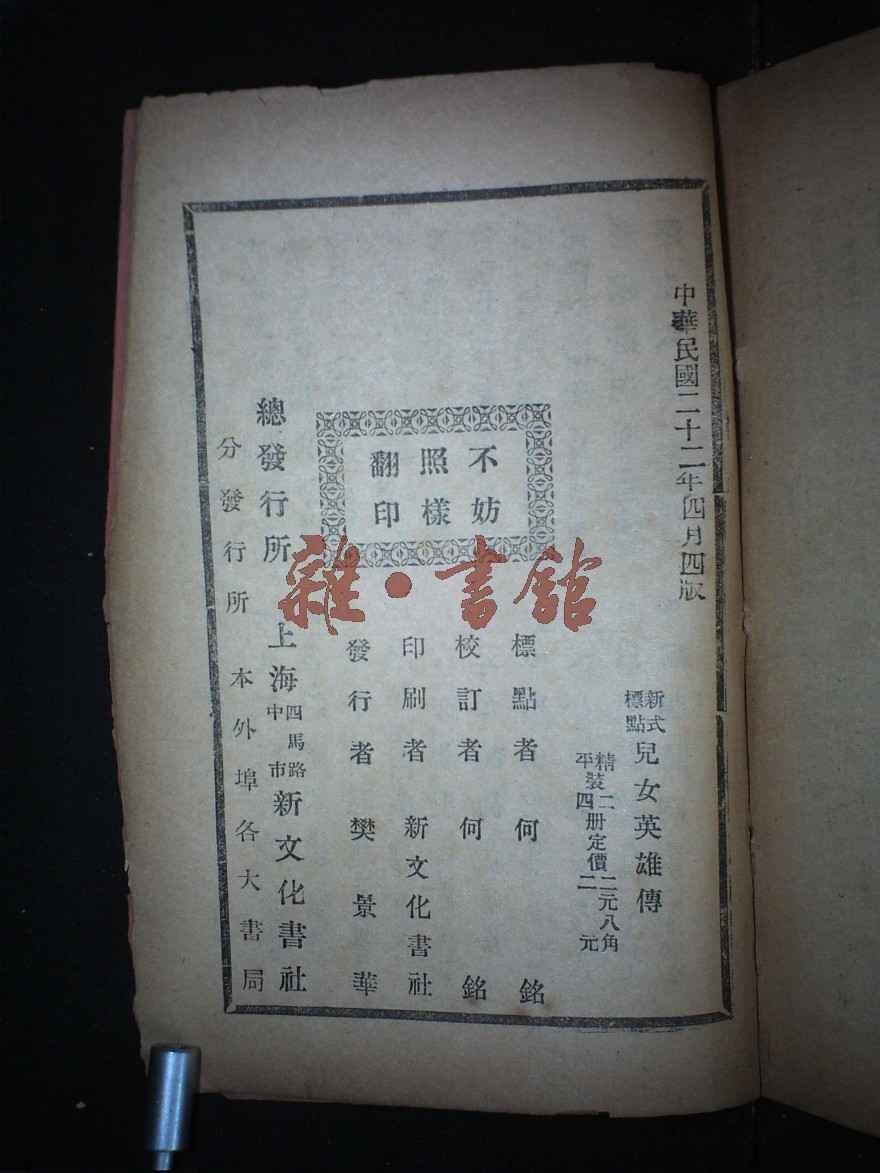 中華民國二十二年四月四版
新式標點 兒女英雄傳
精裝二册定價二元八角
平裝四册定價二元
不妨
照樣
翻印
標點者 何銘
校訂者 何銘
印刷者 新文化書社
發行者 樊景華
總發行所 上海四馬路中市 新文化書社
分發行所 本外埠各大書局
雜·書館